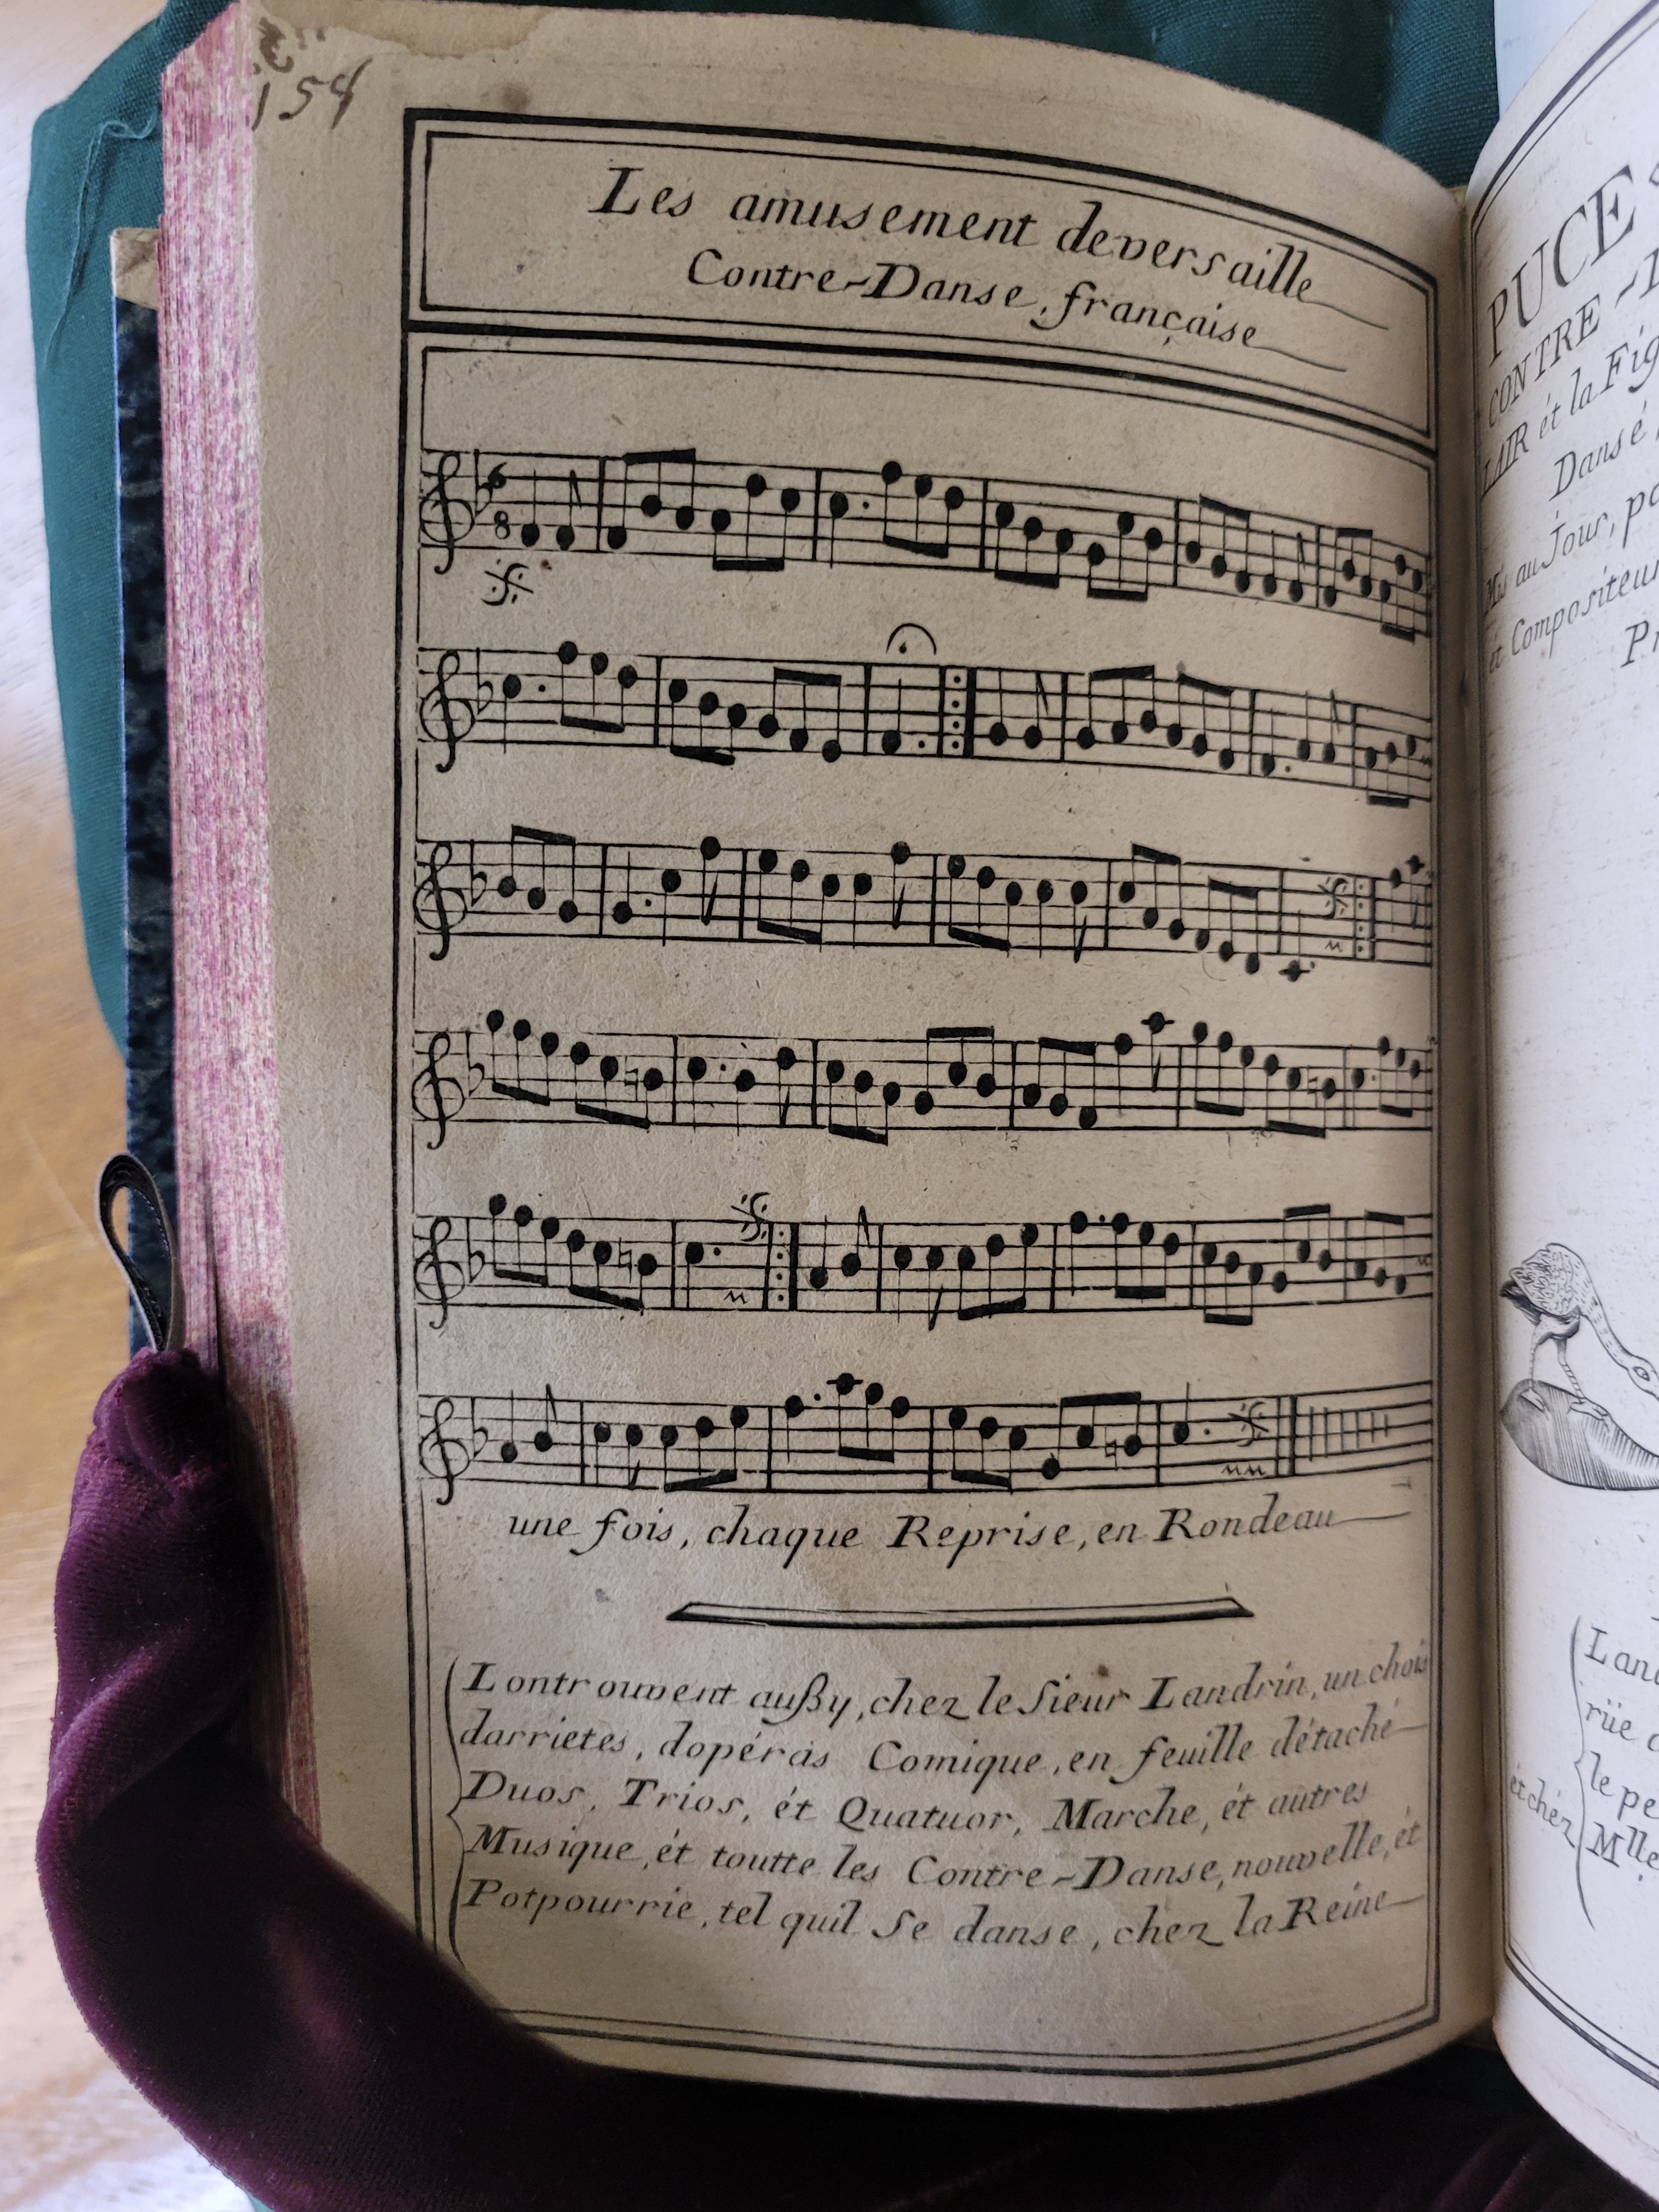 154
Les amusement deversaille
Contre-Danse, française
6
8
une fois, chaque Reprise, en Rondeau
Lontrouvent außy, chez le Sieur Landrin, un chois
darrietes, dopéras Comique, en feuille détaché
Duos, Trios, ét Quatuor, Marche, ét autres
Musique, ét toutte les Contre-Danse, nouvelle, ét
Potpourrie, tel quil Se danse, chez la Reine
PUCE
CONTRE-D
LAIR ét la Fig
Dansé,
Mis au Jour, pa
ét Compositeur
Pr
Land
rüe d
le pe
ét chéz
Mlle